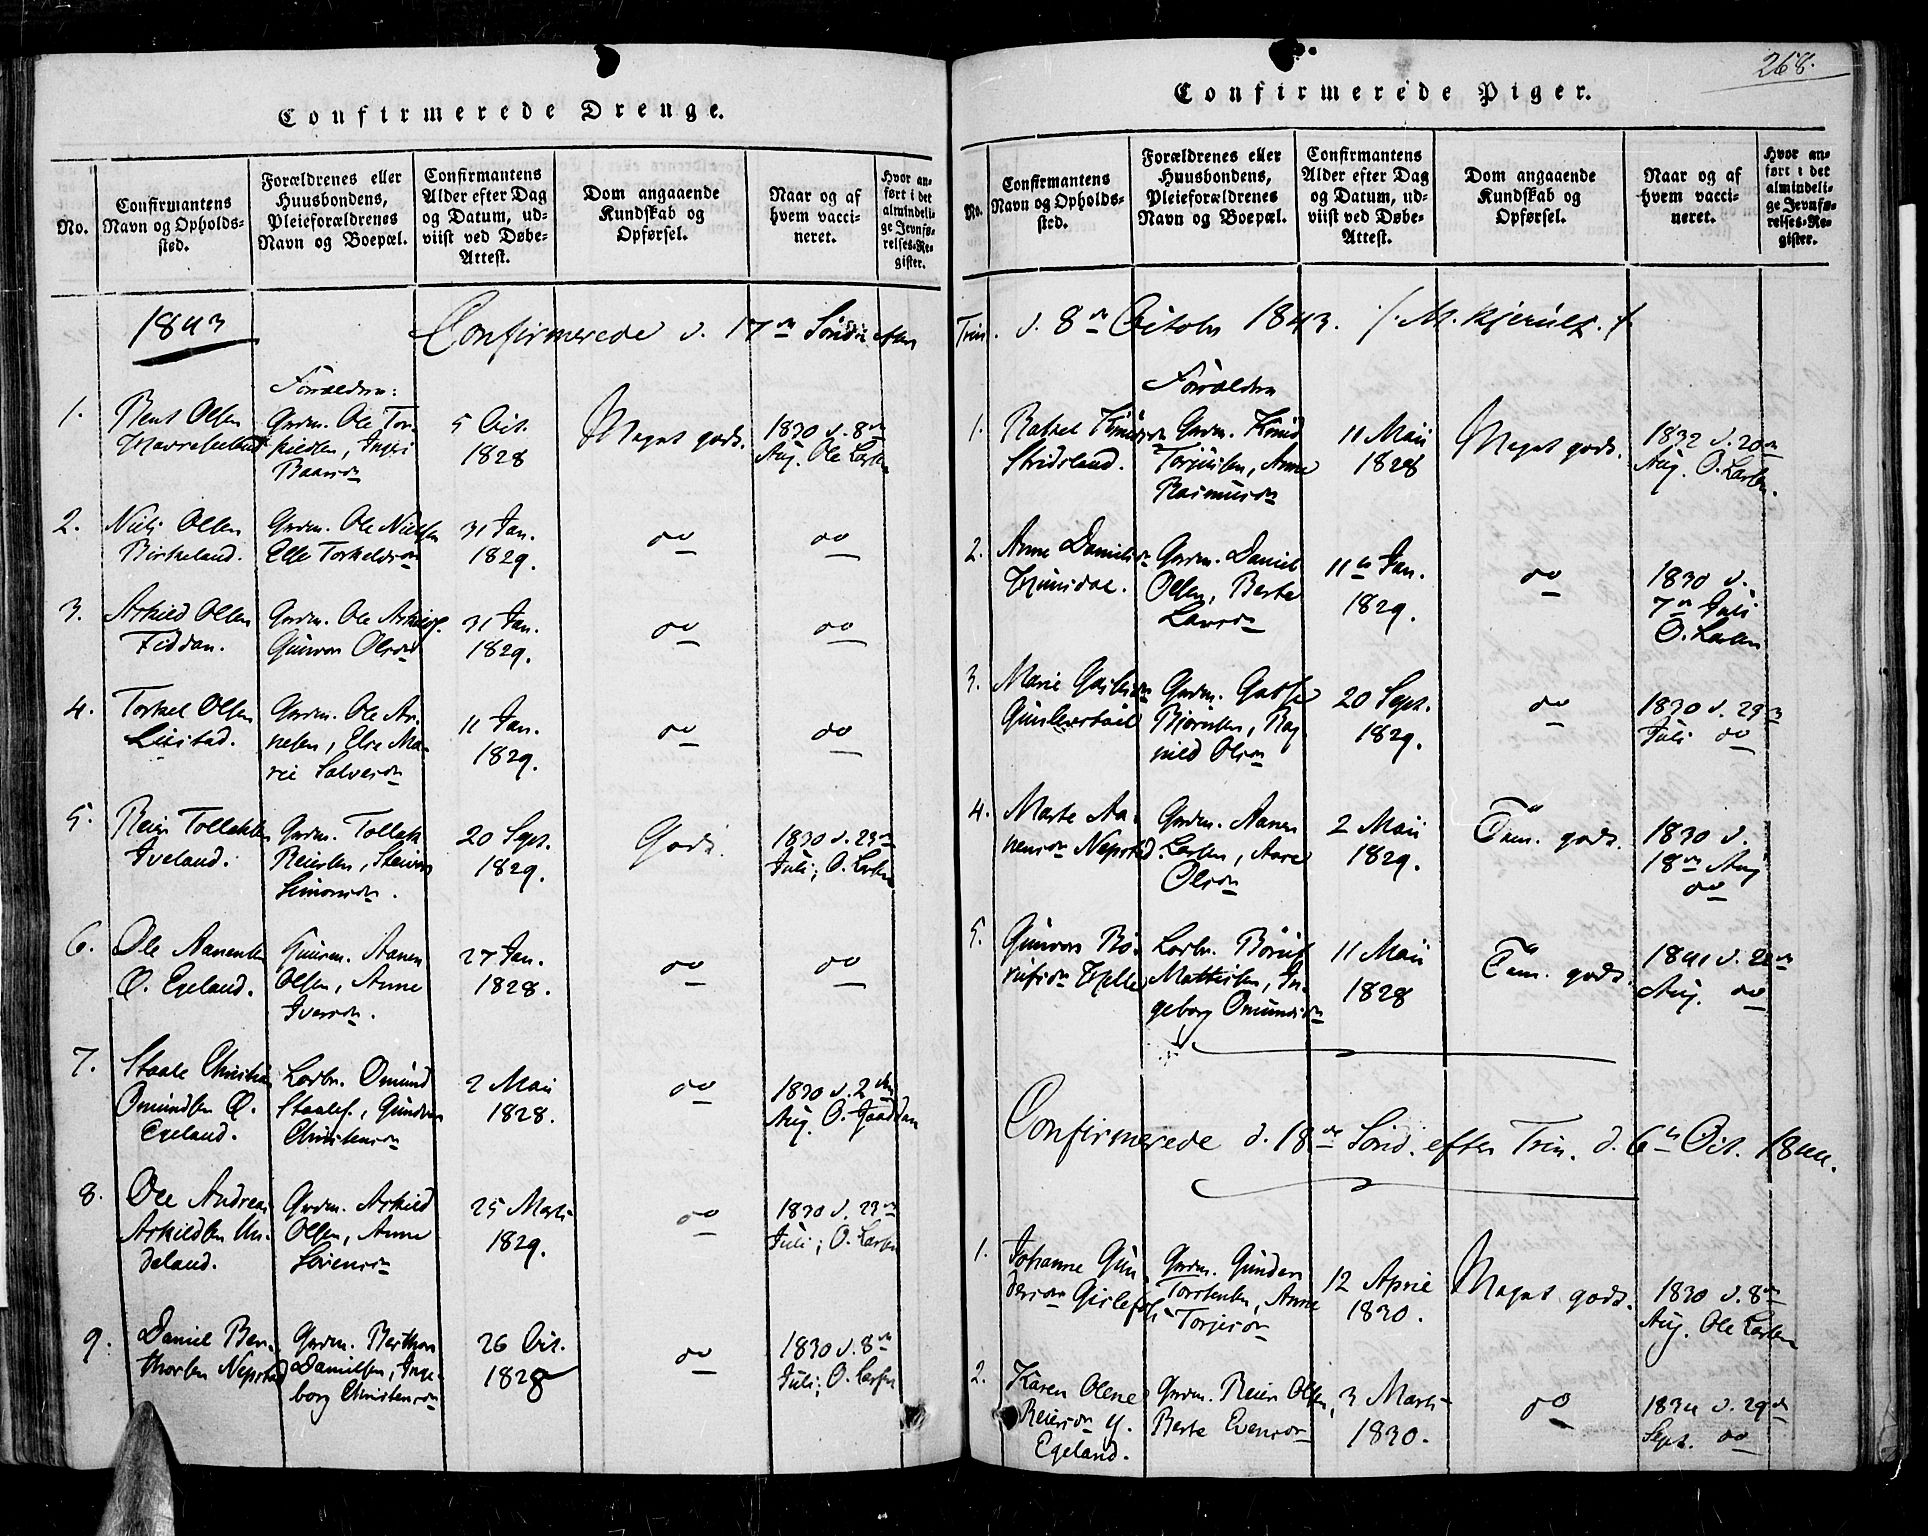 268.
Confirmerede Drenge.
No.
Confirmantens
Navn og Opholds-
sted.
Forældrenes eller
Huusbondens,
Pleieforældrenes
Navn og Boepæl.
Confirmantens
Alder efter Dag
og Datum, ud-
viist ved Døbe-
Attest.
Dom angaaende
Kundskab og
Opførsel.
Naar og af
hvem vacci-
neret.
Hvor an-
ført i det
almindeli-
ge Jevnfø-
relses-Re-
gister.
1843
Confirmerede d. 17de Sønd. efter
1.
Bent Olsen
Forældre:
Grdm. Ole Tor-
kieldsen, Ingri
5 Oct.
1828
Meget godt.
1830 d. 8de
Aug. Ole Larsen
2.
Niels Olsen
Birkeland.
Grdm. Ole Nielsen
Else Torkelds.
31 Jan.
1829.
do
do
3.
Askild Olsen
Fiddan.
Grdm. Ole Askilds.
Gunvor Olsd.
31 Jan.
1829.
do
do
4.
Torkel Olsen
Listad.
Grdm. Ole Ar-
nesen, Else Ma-
rie Salvesd.
11 Jan.
1829.
do
do
5.
Reier Tollaksen
Iveland.
Grdm. Tollak
Reiersen, Steinvor
Simonsd.
20 Sept.
1829.
Godt.
1830 d. 23de
Juli; O. Larsen
6.
Ole Aanensen
Ø. Egeland.
Aanen
Olsen, Anne
Iversd.
27 Jan.
1828.
do
do
7.
Staale Christian
Omundsen Ø.
Egeland.
Omund
Staales., Gundvor
Christensd.
2 Maii
1828.
do
1830 d. 2den
Aug. O. Haaddan
8.
Ole Andreas
Askildsen Un-
deland.
Grdm. Askild
Olsen, Anne
Sørensd.
25 Marts
1829.
do
1830 d. 23de
Juli; O. Larsen
9.
Daniel Ber-
thorsen Nepstad
Grdm. Berthor
Danielsen, Inge-
borg Christensd.
26 Oct.
1828
do
1830 d. 8de
Juli; O. Larsen
Confirmerede Piger.
No.
Confirmantens
Navn og Opholds-
sted.
Forældrenes eller
Huusbondens,
Pleieforældrenes
Navn og Boepæl.
Confirmantens
Alder efter Dag
og Datum, ud-
viist ved Døbe-
Attest.
Dom angaaende
Kundskab og
Opførsel.
Naar og af
hvem vacci-
neret.
Hvor an-
ført i det
almindeli-
ge Jevnfø-
relses-Re-
gister.
Trin. d. 8de October 1843. /: M. Kjerulf. :/
1.
Rakel Knudsd.
Stridsland.
Forældre
Grdm. Knud
Torjusen, Anne
Rasmusd.
11 Maii
1828
Meget godt.
1832 d. 20de
Aug. O. Larsen.
2.
Anne Danielsd.
Grdm. Daniel
Olsen, Berte
Larsd.
11te Jan.
1829.
do
1830 d.
7de Juli
O. Larsen
3.
Marie
Grdm.
Bjørnsen, Rag-
nild Olsd.
20 Sept.
1829.
do
1830 d. 23de
Juli do
4.
Marte Aa-
nensd. Nepstad
Grdm. Aanen
Larsen, Aase
Olsd.
2 Maii
1829.
Tem. godt.
1830 d.
18de Aug
do
5.
Gunvor Bø-
Børuf
Mattisen, In-
geborg Omundsd.
11 Maii
1828
Tem. godt.
1841 d. 22de
Aug. do
Confirmerede d. 18de Sønd. efter Trin. d. 6te Oct. 1844.
1.
Johanne Gun-
dersd. Gislefos
Grdm. Gunder
Torstensen, Anne
Torjesd.
12 April
1830.
Meget godt.
1830 d. 8de
Aug. Ole Larsen
2.
Karen Olene
Reiersd. y.
Egeland.
Grdm. Reier Olsen,
Berte Evensd.
3 Marts
1830.
do
1834 d. 29de
Sept. do